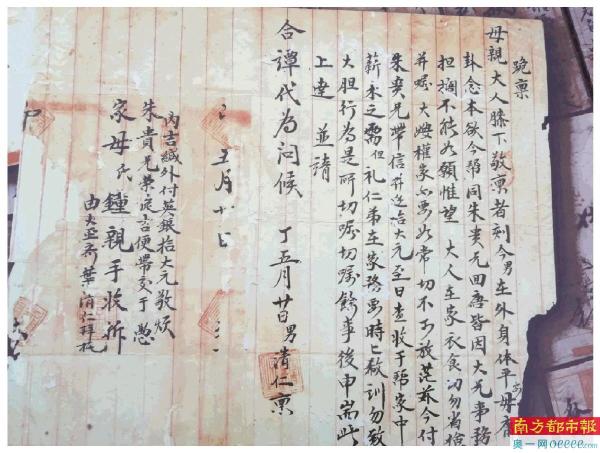 跪禀
母親大人膝下敬禀者刻今男在外身体平安毋庸
卦念本欲今帮同朱贵兄回唐皆因大兄事務
担擱不能如願惟望 大人在家衣食切勿省儉
并嘱大嫂權家 要如常切不可放茫兹今付
朱贵兄带信并逃洽大元至日查收于帮家中
薪水之需但礼仁弟在家務要時訓勿致
大胆行為是所切嘱切嘱餘事後申耑此
上達 並請
合譚代為问候 丁五月廿日男清仁禀
五月十
内吉緘外付英銀拾大元敬烦
朱貴兄榮旋吉便带交于
家母 氏鍾親手收拆
由大 葉清仁拜托
南方都市報
奥一网oeeee.com